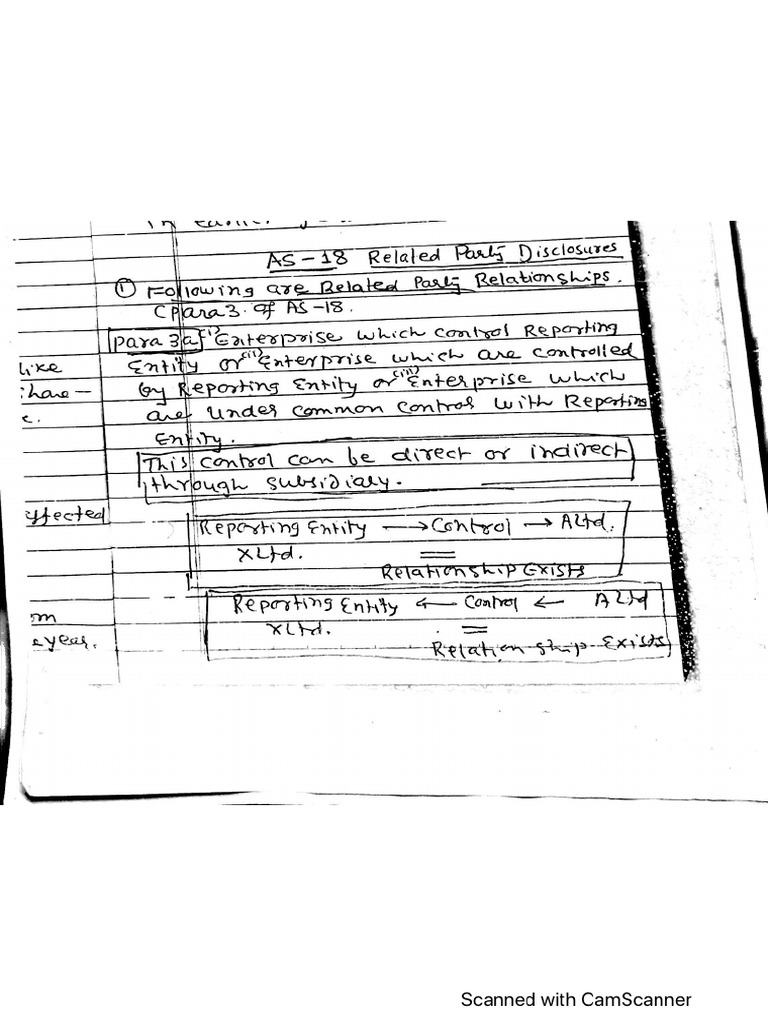 AS-18 Related Party Disclosures
① Following are Related Party Relationships.
(Para 3. of AS-18.
Para 3a (i) Enterprise which control Reporting
Entity or (ii) Enterprise which are controlled
by Reporting Entity or (iii) Enterprise which
are under common control with Reporting
Entity.
This control can be direct or indirect
through subsidiary.
Reporting Entity → Control → A Ltd.
X Ltd. =
Relationship Exists
Reporting Entity ← Control ← A Ltd
X Ltd. =
Relationship Exists
like
share-
effected
year.
Scanned with CamScanner